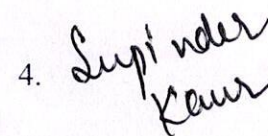 4. Supinder
Kaur